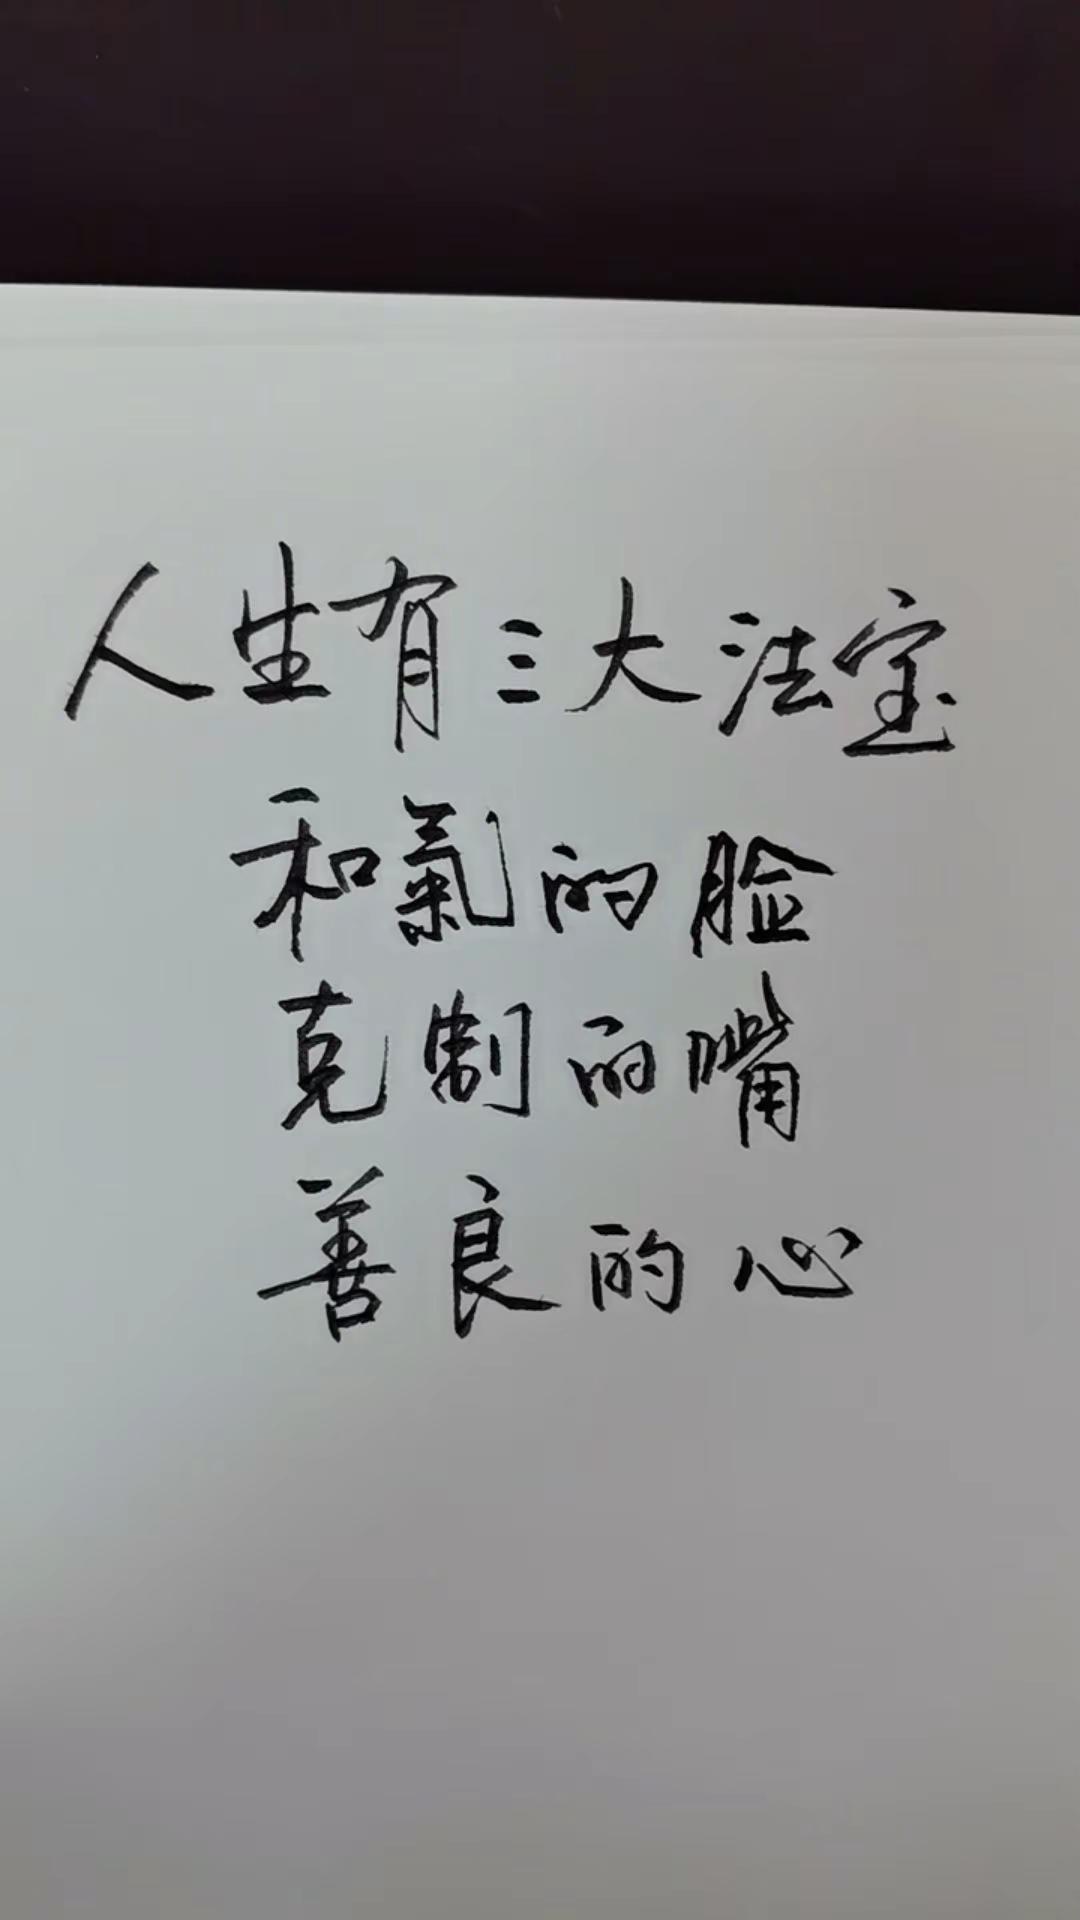 人生有三大法宝
和氣的脸
克制的嘴
善良的心